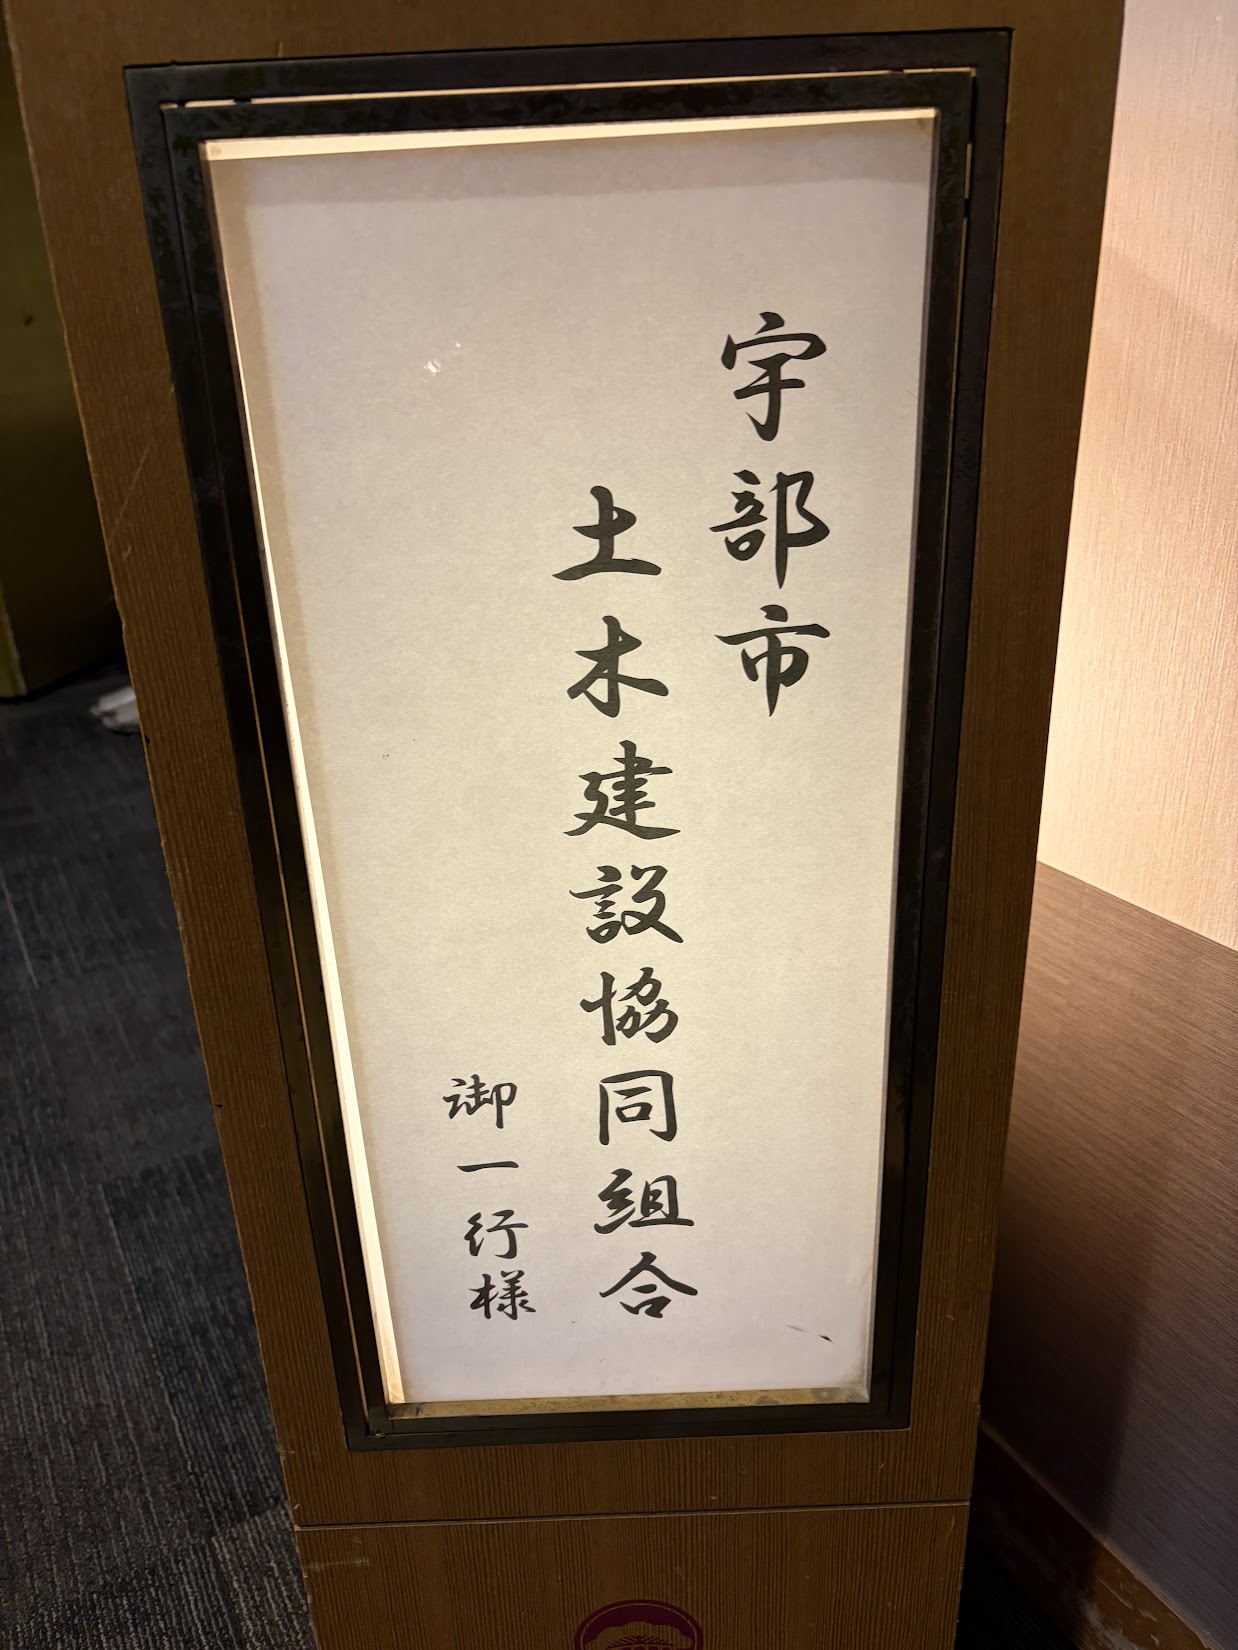 宇部市
土木建設協同組合
御一行様